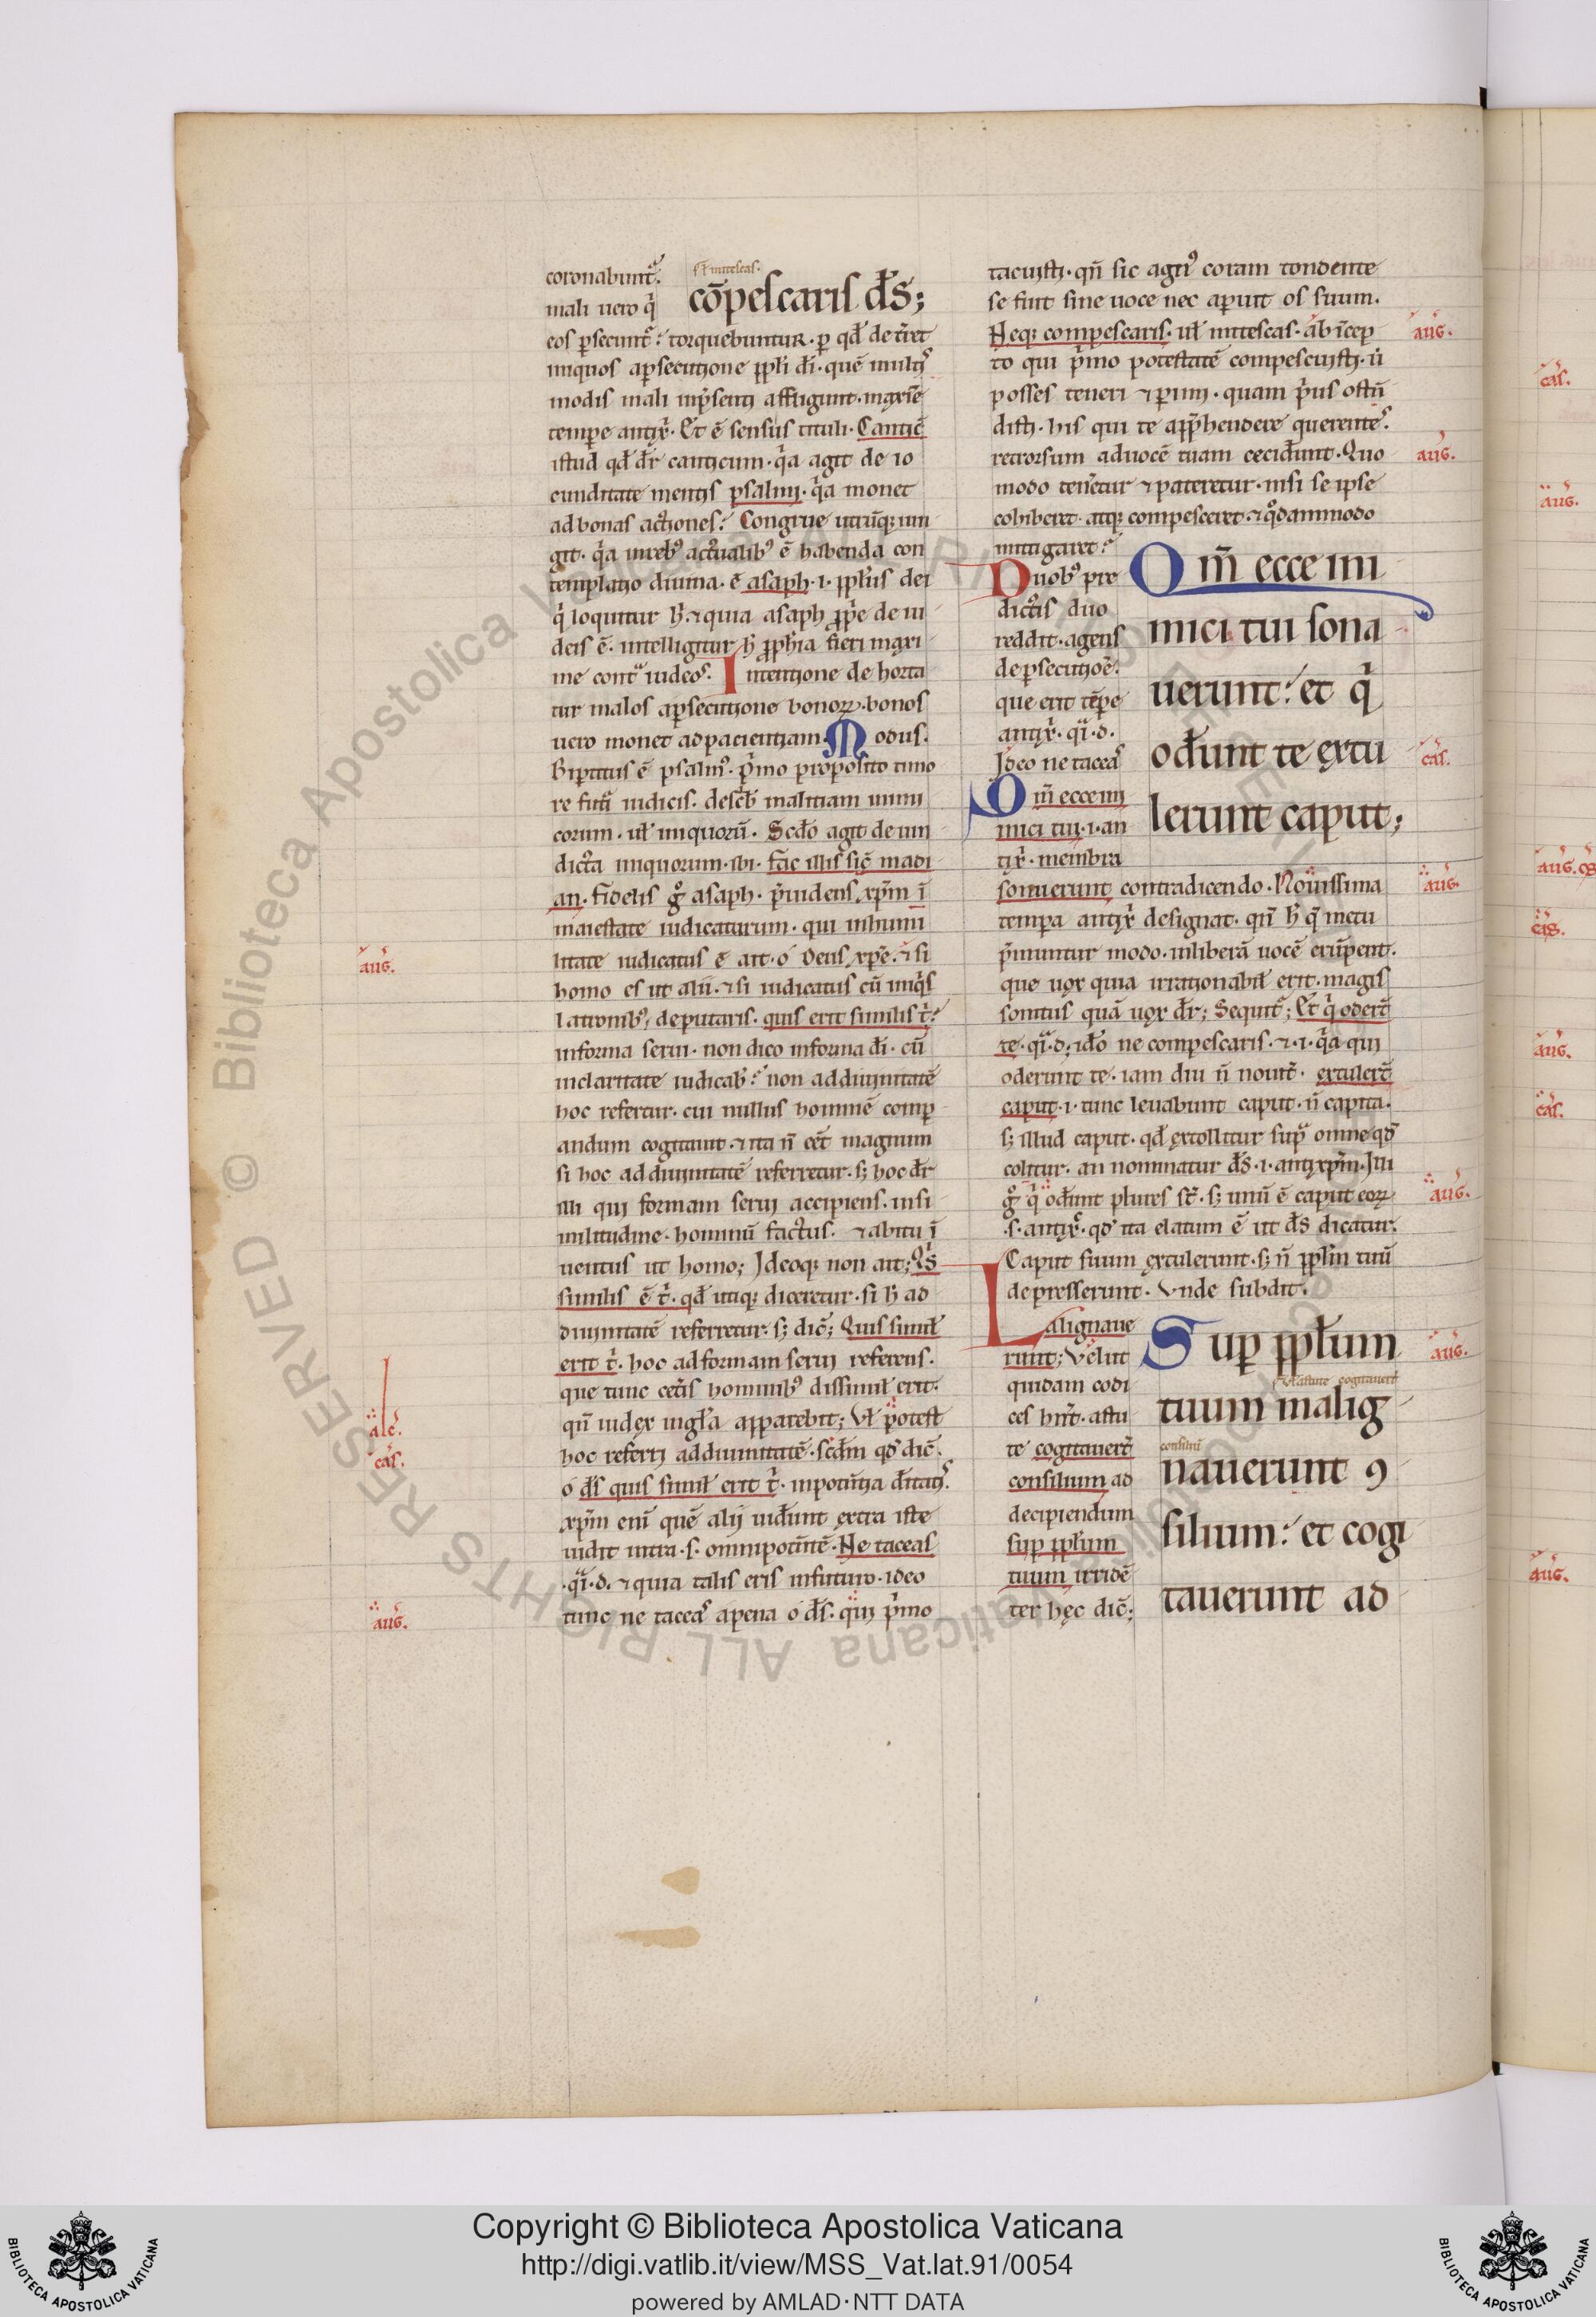 coronabuntᷓ.
ł mitescas.
cōpescaris ds̄;
mali uero q̇
eos ꝑsecuntᷓ: torquebuntur. ꝑ qđ deterret
iniquos a ꝑsecutione ppłi di. quē multis
modis mali inpsenti affligunt. maxīe
tempe antix̄. Et ē sensus tituli. Cantic̄
istud qđ dr̄ canticum. q̇a agit de io
cunditate mentis psalmi. q̇a monet
ad bonas actiones: Congrue utrūq; iun
git. q̇a in rebꝰ actualibꝰ ē habenda con
templatio diuina. ē asaph .i. ppłus dei
q̇ loquitur h̄. ⁊ quia asaph ꝓpe de iu
deis ē. intelligitur h̄ ꝓphia fieri maxi
me contᷓ iudeos. Intentione de horta
tur malos a ꝑsecutione bonoꝝ. bonos
uero monet ad pacientiam. Modus.
Biꝑtitus ē psalmꝰ. p̄mo proposito timo
re futᷓi iudicis. descb̄ malitiam inimi
corum. uł iniquorū. Scđo agit de uin
dicta iniquorum. ibi. fac illis sic̄ madi
an. fidelis g̊ asaph. p̄uidens xp̄m ī
maiestate iudicaturum. qui inhumi
litate iudicatus ē ait. ó deus xp̄e. ⁊ si
homo es ut alii. ⁊ si iudicatus cū iniq̇s
latronibꝰ; deputaris. quis erit similis t̄?
informa serui. non dico informa di. cū
inclaritate iudicab̄: non ad diuinitatē
hoc refertur. cui nullus hominē comp
andum cogitauit. ⁊ ita n̄ eēt magnum
si hoc ad diuinitatē referretur. s; hoc dr̄
illi qui formam serui accipiens. insi
militudine. hominū factus. ⁊ abitu ī
uentus ut homo; Ideoq; non ait; Q̇s
similis ē t̄. qđ utiq; diceretur. si h̄ ad
diuinitatē referretur. s; dic̄; Quis simił
erit t̄. hoc ad formam serui referens.
que tunc cet̄is hominibꝰ dissimił erit.
qn̄ iudex in gła apparebit; Vł potest
hoc referri ad diuinitatē. scđm qđ dic̄.
ó ds̄ quis simił erit t̄. inpotentia ditatis.
xp̄m eni quē alij uidunt extra iste
uidit intra .s. omnipotentē. Ne taceas
.q̇i. d. ⁊ quia talis eris infuturo. ideo
tunc ne taceas a pena ó ds̄. qui p̄mo
tacuisti. qn̄ sic agnꝰ coram tondente
se fuit sine uoce nec aperuit os suum.
Neq; compescaris. uł mitescas. ab īcep
to qui p̄mo potestatē compescuisti. ut
posses teneri ⁊ perimi. quam p̄us ostn̄
disti. his qui te app̄hendere querentes.
retrorsum ad uocē tuam cecidunt. Quo
modo teneretur ⁊ pateretur. nisi se ipse
cohiberet. atq; compesceret ⁊ q̊dammodo
mitigaret:
Duobꝰ pre
dictis duo
reddit. agens
de ꝑsecutiōē.
que erit tēpe
antix̄. q̇i. d.
Ideo ne taceas
Qm̄ ecce ini
mici tui .i. an
tix̄. membra
Qm̄ ecce ini
mici tui sona
uerunt: et q̇
odunt te extu
lerunt caput;
sonuerunt contradicendo. Nouissima
tempa antix̄ designat. qn̄ h̄ q̄ metu
p̄muntur modo. inliberā uocē erūpent.
que uox quia irrationabił erit. magis
sonitus quā uox dr̄; Sequitᷓ; Et q̇ oder̄t
te. q̇i. d; ido ne compescaris. ⁊ .i. q̇a qui
oderunt te. iam diu n̄ nouit. extuler̄t
caput .i. tunc leuabunt caput. n̄ capita.
s; illud caput. qđ extollitur supᷓ omne qđ
colitur. an nominatur ds̄ .i. antixp̄m. Illi
g̊ q̇ odunt plures st̄. s; unū ē caput eoꝝ
.s. antix̄. qđ ita elatum ē ut ds̄ dicatur.
Caput suum extulerunt. s; n̄ ppłm tuū
depresserunt. Vnde subdit.
Malignaue
runt; Velut
quidam codi
ces hn̄t. astu
te cogitauer̄t
consilium ad
decipiendum
sup ppłum
tuum irridē
ter hęc dic̄;
Sup ppłum
ł astute cogitauer̄t
tuum malig
consiliū
nauerunt ꝯ
silium: et cogi
tauerunt ad
aug.
alc̄.
cas.
aug.
aug.
aug.
cas.
aug.
aug.
aug.
cas.
aug.
aug.
cis.
aug.
cas.
aug.
© Biblioteca Apostolica Vaticana ALL RIGHTS RESERVED
Copyright © Biblioteca Apostolica Vaticana
http://digi.vatlib.it/view/MSS_Vat.lat.91/0054
powered by AMLAD·NTT DATA
BIBLIOTECA APOSTOLICA VATICANA
BIBLIOTECA APOSTOLICA VATICANA